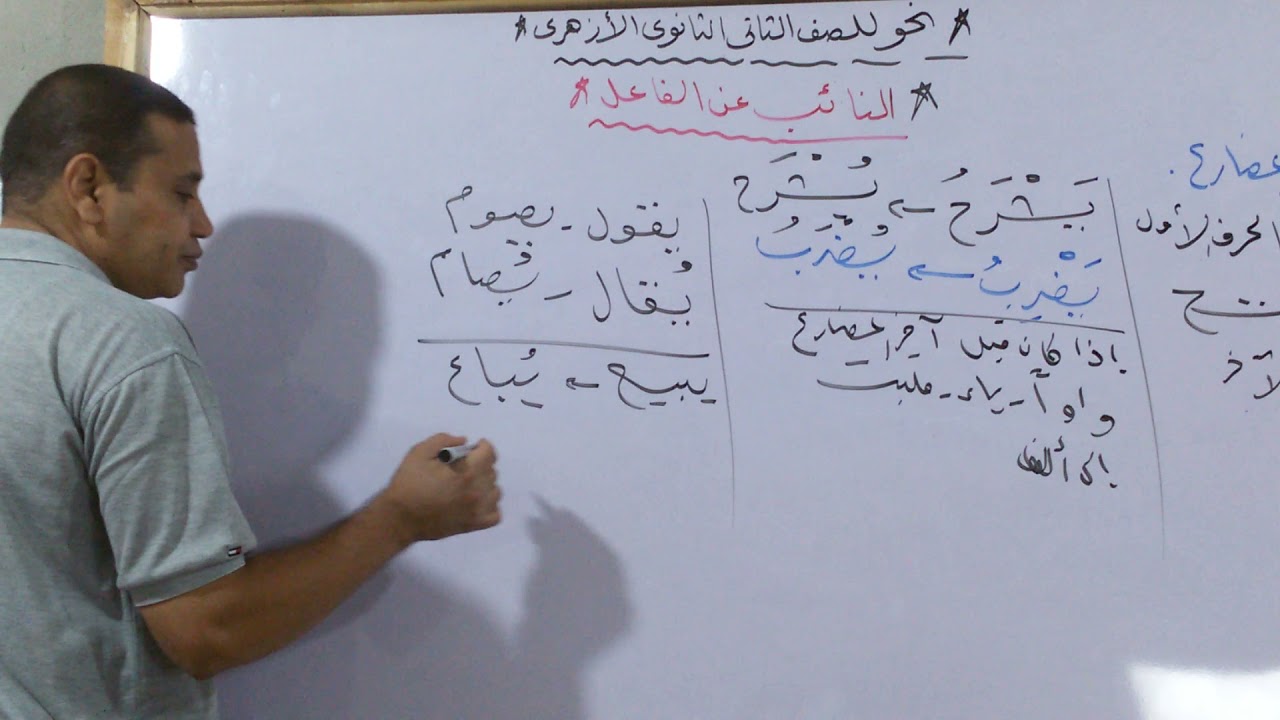 * نحو للصف الثانى الثانوى الأزهرى *
* النائب عن الفاعل *
الحرف الأول
يَشْرَحُ ← يُشْرَح
يَضْرِبُ ← يُضْرَبُ
إذا كان قبل آخر المضارع
واو أ - ياء - قلبت
إلى ألف
يقول - يصوم
يُقال - يُصام
يبيع ← يُباع